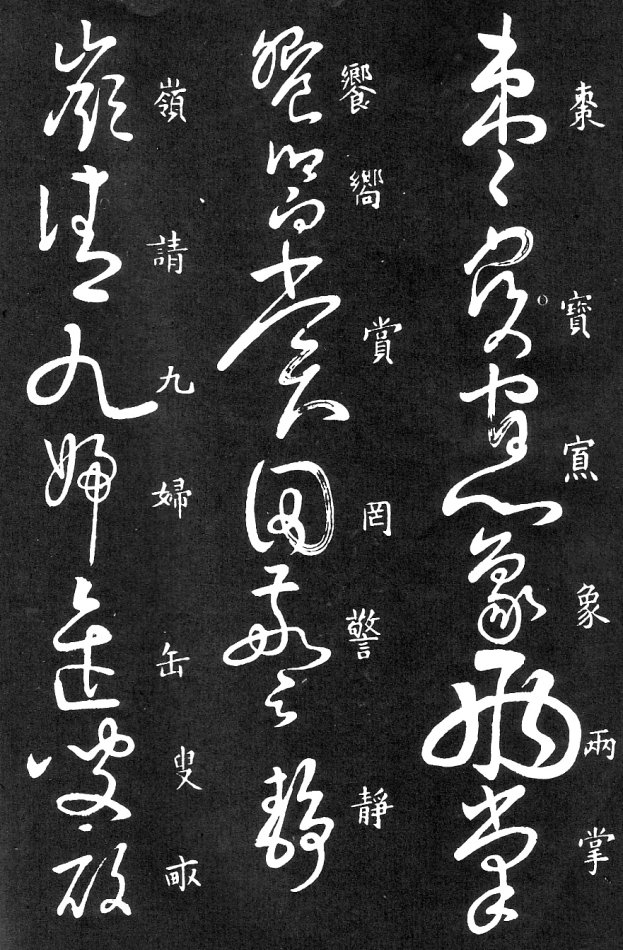 棗寶象兩掌
饗嚮賞罔警靜
嶺請九婦缶叟畝